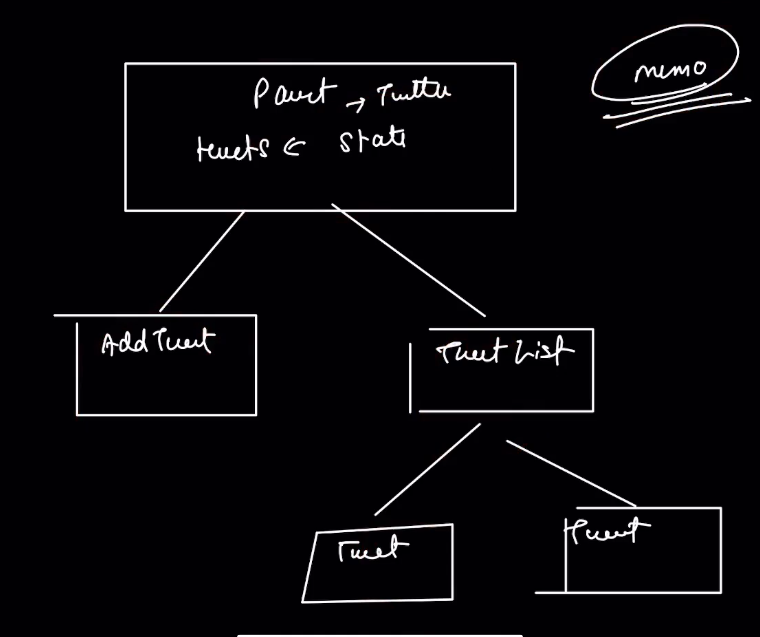 memo
Parent → Twitter
tweets ← State
AddTweet
Tweet List
Tweet
Tweet